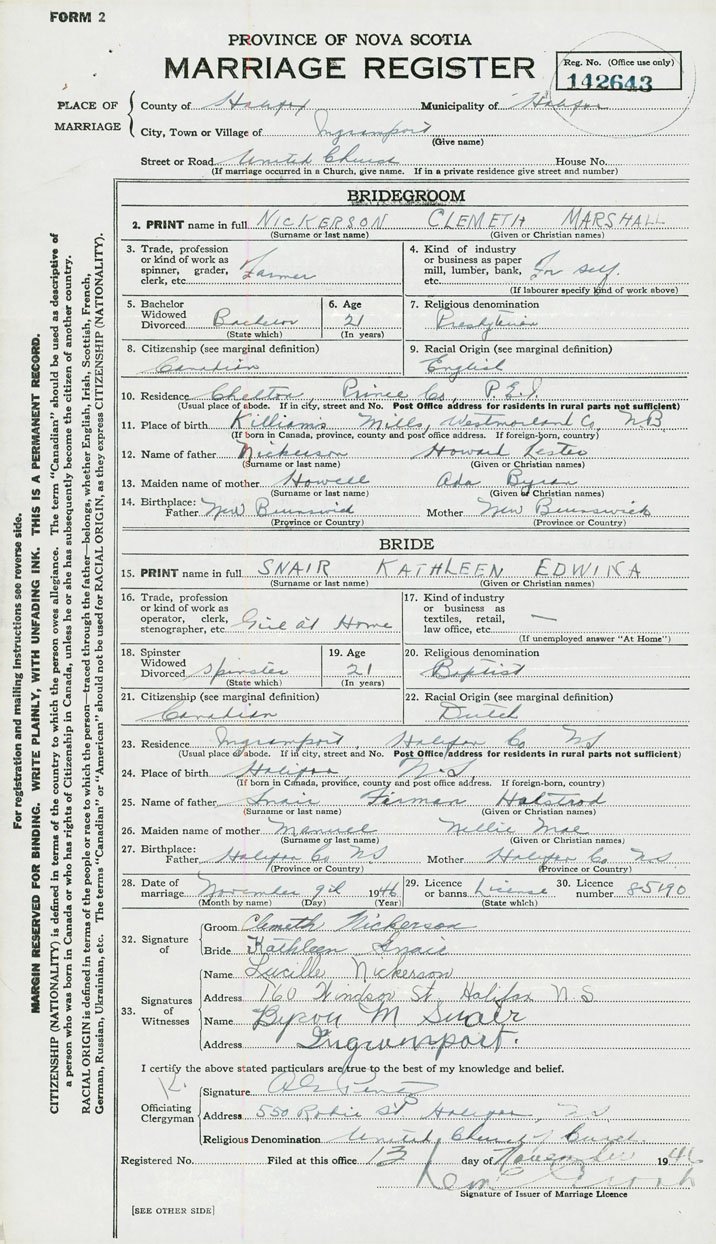 FORM 2
PROVINCE OF NOVA SCOTIA
MARRIAGE REGISTER
Reg. No. (Office use only)
142643
PLACE OF MARRIAGE
County of Halifax Municipality of Halifax
City, Town or Village of Ingramport
(Give name)
Street or Road United Church House No.
(If marriage occurred in a Church, give name. If in a private residence give street and number)
BRIDEGROOM
2. PRINT name in full NICKERSON CLEMETH MARSHALL
(Surname or last name) (Given or Christian names)
3. Trade, profession or kind of work as spinner, grader, clerk, etc. Farmer
4. Kind of industry or business as paper mill, lumber, bank, etc. For self.
(If labourer specify kind of work above)
5. Bachelor Widowed Divorced Bachelor
(State which)
6. Age 21
(In years)
7. Religious denomination
Presbyterian
8. Citizenship (see marginal definition)
Canadian
9. Racial Origin (see marginal definition)
English
10. Residence Chelton, Prince Co, P.E.I.
(Usual place of abode. If in city, street and No. Post Office address for residents in rural parts not sufficient)
11. Place of birth Mills, Westmorland Co, N.B.
(If born in Canada, province, county and post office address. If foreign-born, country)
12. Name of father Nickerson Howard Lester
(Surname or last name) (Given or Christian names)
13. Maiden name of mother Howell Ada
(Surname or last name) (Given or Christian names)
14. Birthplace: Father New Brunswick Mother New Brunswick
(Province or Country) (Province or Country)
BRIDE
15. PRINT name in full SNAIR KATHLEEN EDWINA
(Surname or last name) (Given or Christian names)
16. Trade, profession or kind of work as operator, clerk, stenographer, etc. Girl at Home
17. Kind of industry or business as textiles, retail, law office, etc. —
(If unemployed answer "At Home")
18. Spinster Widowed Divorced Spinster
(State which)
19. Age 21
(In years)
20. Religious denomination
Baptist
21. Citizenship (see marginal definition)
Canadian
22. Racial Origin (see marginal definition)
Dutch
23. Residence Ingramport, Halifax Co NS
(Usual place of abode. If in city, street and No. Post Office address for residents in rural parts not sufficient)
24. Place of birth Halifax N.S.
(If born in Canada, province, county and post office address. If foreign-born, country)
25. Name of father Snair Firman
(Surname or last name) (Given or Christian names)
26. Maiden name of mother Manuel Nellie Mae
(Surname or last name) (Given or Christian names)
27. Birthplace: Father Halifax Co NS Mother Halifax Co NS
(Province or Country) (Province or Country)
28. Date of marriage November 9th 1946
(Month by name) (Day) (Year)
29. Licence or banns License
(State which)
30. Licence number 85190
32. Signature of
Groom Clemeth Nickerson
Bride Kathleen Snair
33. Signatures of Witnesses
Name Lucille Nickerson
Address 160 Windsor St. Halifax N.S
Name Byron M Snair
Address Ingramport.
I certify the above stated particulars are true to the best of my knowledge and belief.
Officiating Clergyman
Signature
Address 550 Robie St Halifax,
Religious Denomination United Church of
Registered No. Filed at this office 13 day of November 1946
Signature of Issuer of Marriage Licence
[SEE OTHER SIDE]
For registration and mailing instructions see reverse side.
MARGIN RESERVED FOR BINDING. WRITE PLAINLY, WITH UNFADING INK. THIS IS A PERMANENT RECORD.
CITIZENSHIP (NATIONALITY) is defined in terms of the country to which the person owes allegiance. The term "Canadian" should be used as descriptive of
a person who was born in Canada or who has rights of Citizenship in Canada, unless he or she has subsequently become the citizen of another country.
RACIAL ORIGIN is defined in terms of the people or race to which the person—traced through the father—belongs, whether English, Irish, Scottish, French,
German, Russian, Ukrainian, etc. The terms "Canadian" or "American" should not be used for RACIAL ORIGIN, as they express CITIZENSHIP (NATIONALITY).